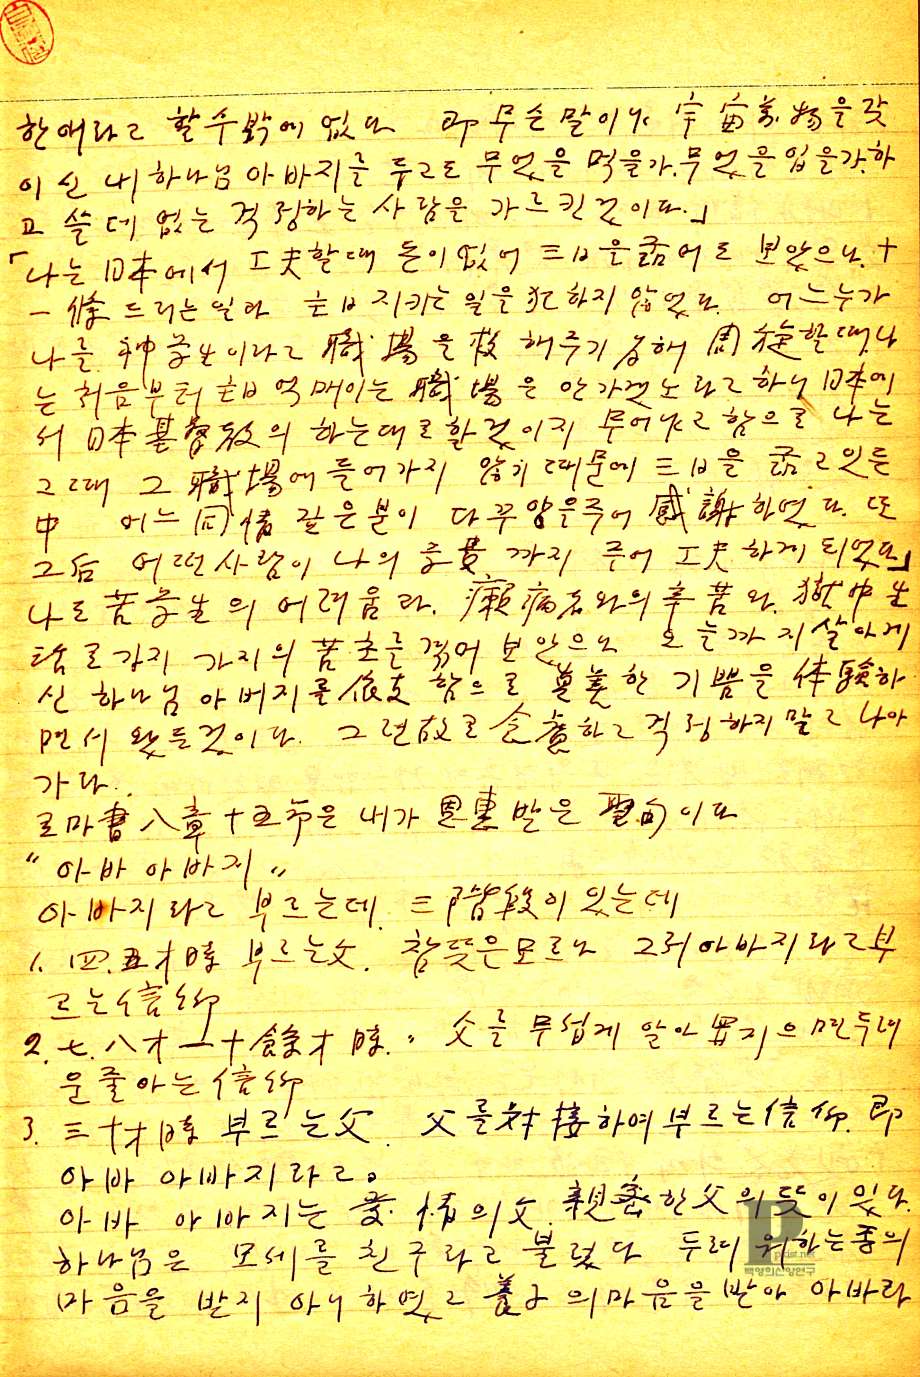 한애라고 할수밖에 없다 即 무슨 말이냐 宇宙萬物을 갖
이신 내 하나님 아바지를 두고도 무엇을 먹을가, 무엇을 입을가, 하
고 쓸데없는 걱정하는 사람을 가르킨것이다.」
「나는 日本에서 工夫할때 돈이 없어 三日을 굶어도 보았으나, 十
一條 드리는일과 主日 지키는 일을 犯하지 않었다. 어느누가
나를 神学生이라고 職場을 救해주기 爲해 周旋할때, 나
는 처음부터 主日 억매이는 職場은 안가겠노라고 하니 日本에
서 日本基督敎의 하는대로할것이지 무어냐고 함으로 나는
그때 그 職場에 들어가지 않기 때문에 三日을 굶고있든
中 어느 同情 같은분이 다꾸앙을주어 感謝하였다. 또
그后 어떤사람이 나의 学費까지 주어 工夫하게 되었다」
나도 苦学生의 어려움과, 癩病者와의 辛苦와, 獄中生
活로 갖지 가지의 苦초를 겪어 보았으나 오늘까지 살아게
신 하나님 아버지를 依支함으로 한 기쁨을 体驗하
면서 왔든것이다. 그런故로 念慮하고 걱정하지 말고 나아
가다.
로마書 八章 十五节은 내가 恩惠 받은 聖句이다
"아바 아바지"
아바지라고 부르는데 三階段이 있는데
1. 四.五才時 부르는父. 참뜻은모르나 그저아바지라고부
르는信仰
2. 七.八才一十餘才時. 〃 父를 무섭게 알아 罪지으면두려
운줄아는信仰
3. 三十才時 부르는父. 父를 対接하여 부르는信仰. 即
아바 아바지라고.
아바 아바지는 愛情의父. 親密한父의뜻이있다.
하나님은 모세를 친구라고 불렀다 두려워하는종의
마음을 받지 아니하였고 養子의마음을받아 아바라
백영희신앙연구
pkist.net